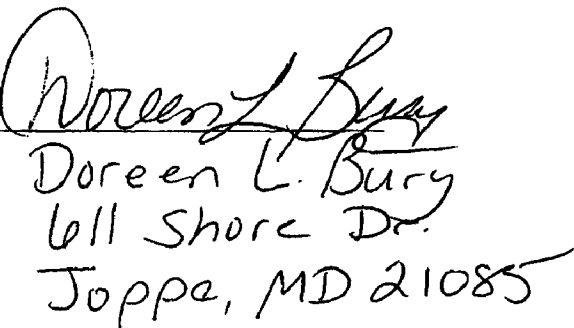 Doreen L Bury
Doreen L. Bury
611 Shore Dr.
Joppa, MD 21085